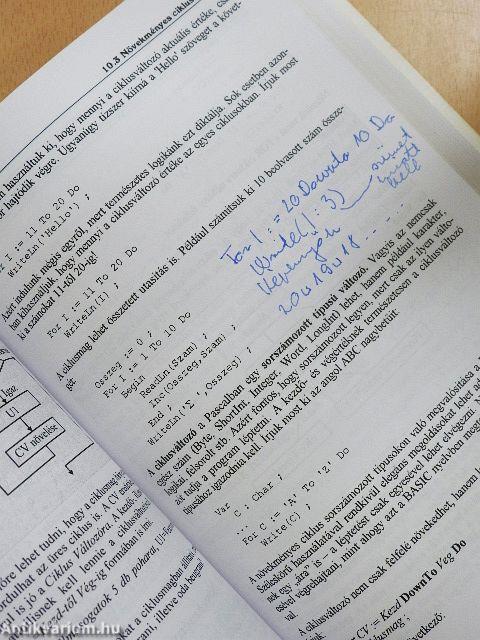 10.3 Növekményes ciklus
használtuk ki, hogy mennyi a ciklusváltozó aktuális értéke,
hajtódik végre. Ugyanúgy tízszer kiírná a 'Hello' szöveget a követ-
I := 11 To 20 Do
WriteLn('Hello') ;
Azért indulunk mégis egyről, mert természetes logikánk ezt diktálja. Sok esetben azon-
ban kihasználjuk, hogy mennyi a ciklusváltozó értéke az egyes ciklusokban. Írjuk most
ki a számokat 11-től 20-ig!
For I := 11 To 20 Do
WriteLn(I) ;
A ciklusmag lehet összetett utasítás is. Például számítsuk ki 10 beolvasott szám össze-
gét.
Osszeg := 0 ;
For I := 1 To 10 Do
Begin
ReadLn(Szam) ;
Inc(Osszeg,Szam) ;
End ;
WriteLn('Σ ',Osszeg) ;
For I := 20 Downto 10 Do
Write(I : 3)
német
miatt
kell
Képernyőn
20 19 18 .....
A ciklusváltozó a Pascalban egy sorszámozott típusú változó. Vagyis az nemcsak
egész szám (Byte, ShortInt, Integer, Word, LongInt) lehet, hanem például karakter,
logikai, felsorolt stb. Azért fontos, hogy sorszámozott legyen, mert csak az ilyen válto-
át tudja a program léptetni. A kezdő- és végértéknek természetesen a ciklusváltozó
típusához igazodnia kell. Írjuk most ki az angol ABC nagybetűit:
Var
C : Char ;
...
For C := 'A' To 'Z' Do
Write(C) ;
A növekményes ciklus sorszámozott típusokon való megvalósítása a
Széleskörű használatával rendkívül elegáns megoldásokat lehet
nek egy „ára" is – a léptetést csak egyesével lehet elvégezni.
esével végrehajtani, mint ahogy azt a BASIC nyelvben megtehet
A ciklusváltozó nem csak felfelé növekedhet, hanem
CV := Kezd DownTo Vég Do
ciklusmag ;
Igaz
U1
CV növelése
előre lehet tudni, hogy a ciklusmag
fordulhat az üres ciklus is. A CV
is jó a Ciklus Változóra
kell lennie a ciklusváltozó
Kezd-től Vég-ig formában is írni.
5 db poharat,
a ciklusmagban
Antikvarium.hu